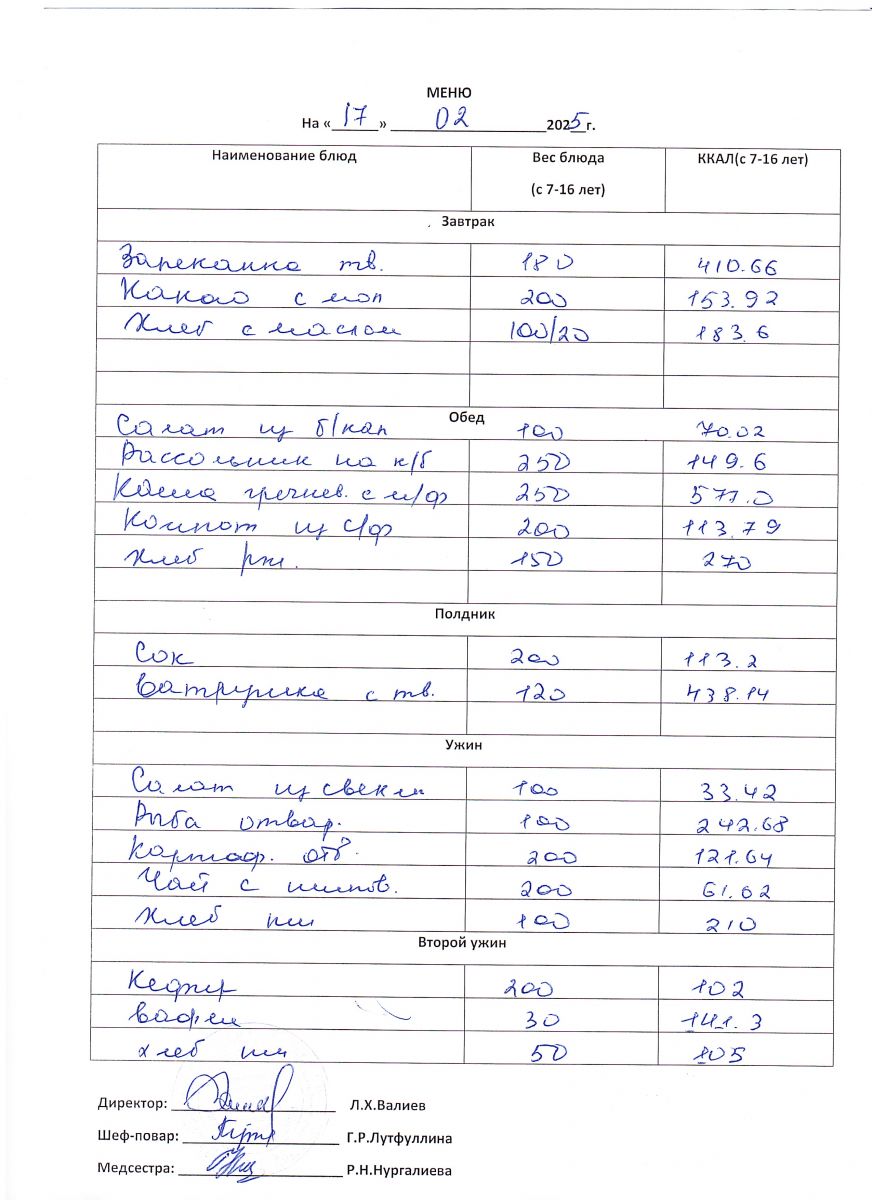 МЕНЮ
На «17» 02 2025 г.
Наименование блюд Вес блюда (с 7-16 лет) ККАЛ(с 7-16 лет)
Завтрак
Запеканка тв. 180 410.66
Какао с мол 200 153.92
Хлеб с маслом 100/20 183.6
Обед
Салат из б/кап 100 70.02
Рассольник на к/б 250 149.6
Каша гречнев. с м/ф 250 577.0
Компот из с/ф 200 113.79
Хлеб рж. 150 270
Полдник
Сок 200 113.2
Ватрушка с тв. 120 438.14
Ужин
Салат из свеклы 100 33.42
Рыба отвар. 100 242.68
Картоф. отв. 200 121.64
Чай с шипов. 200 61.62
Хлеб пш 100 210
Второй ужин
Кефир 200 102
Вафли 30 141.3
хлеб пш 50 105
Директор: Л.Х.Валиев
Шеф-повар: Г.Р.Лутфуллина
Медсестра: Р.Н.Нургалиева